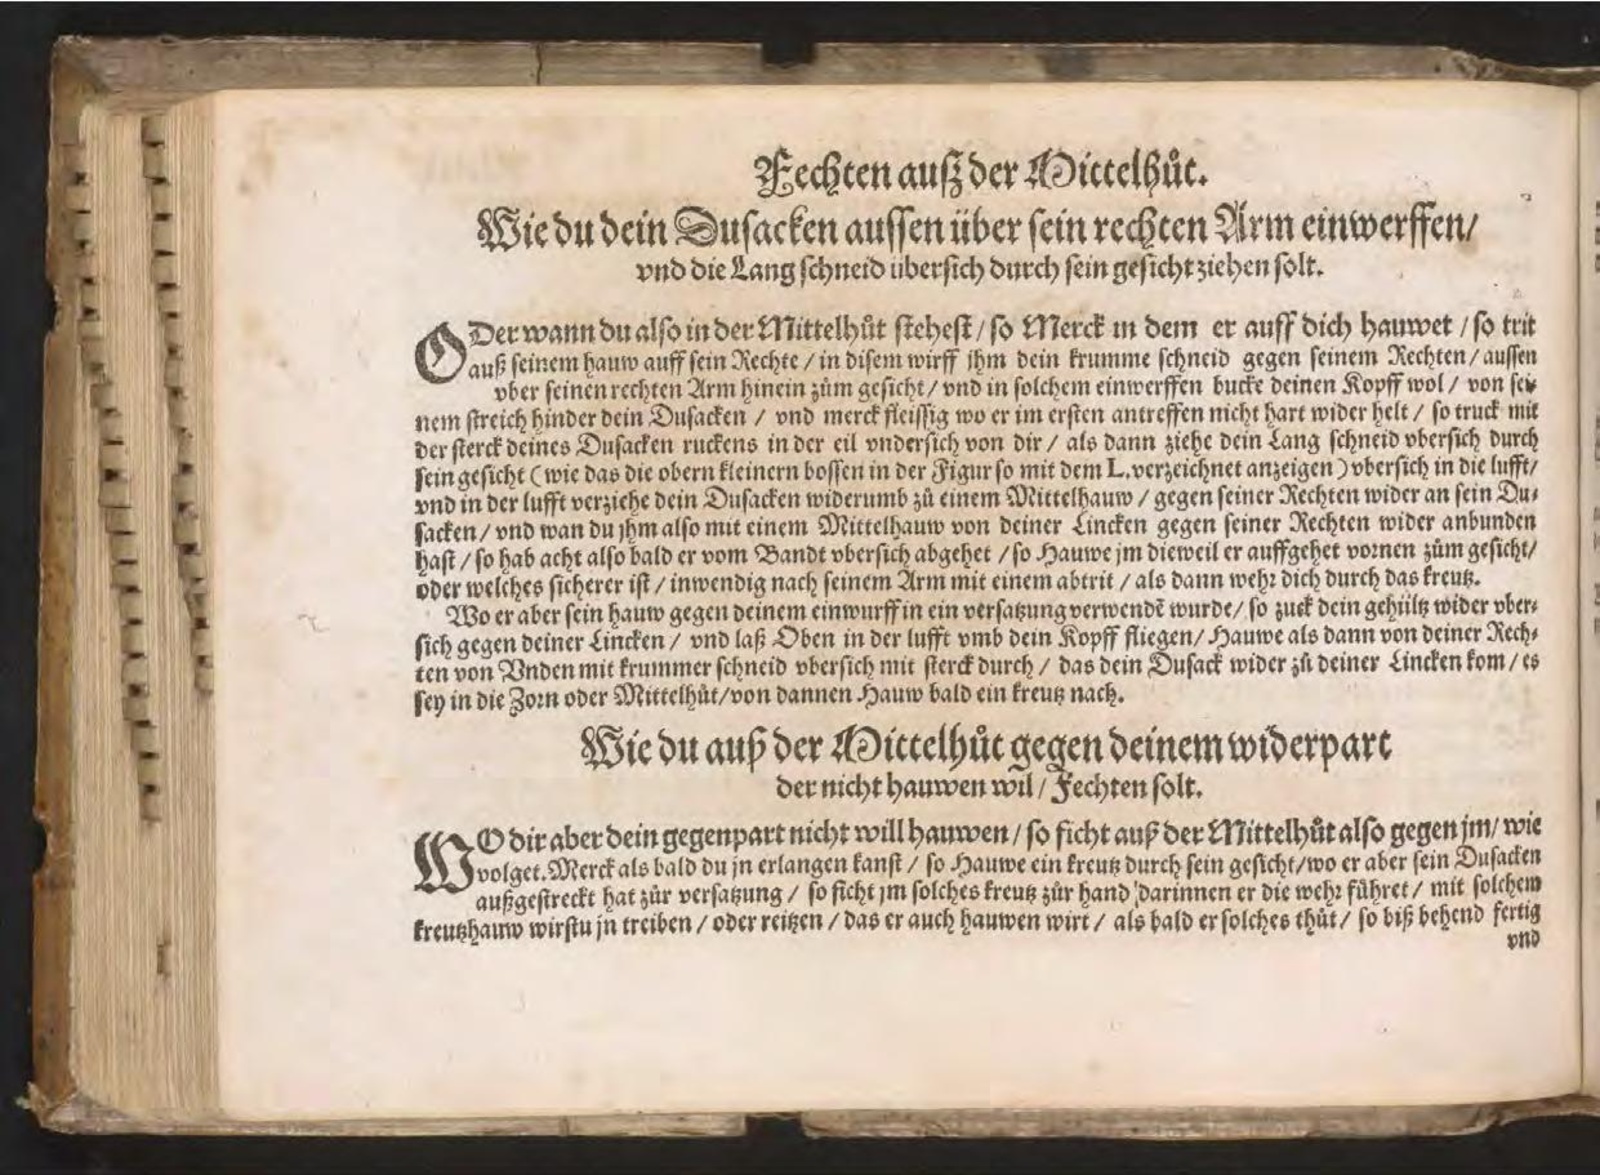 Fechten auß der Mittelhůt.
Wie du dein Dusacken aussen über sein rechten Arm einwerffen/
vnd die Lang schneid übersich durch sein gesicht ziehen solt.
ODer wann du also in der Mittelhůt stehest/ so Merck in dem er auff dich hauwet/ so trit
auß seinem hauw auff sein Rechte/ in disem wirff jhm dein krumme schneid gegen seinem Rechten/ aussen
vber seinen rechten Arm hinein zům gesicht/ vnd in solchem einwerffen bucke deinen Kopff wol/ von sei-
nem streich hinder dein Dusacken/ vnd merck fleissig wo er im ersten antreffen nicht hart wider helt/ so truck mit
der sterck deines Dusacken ruckens in der eil vndersich von dir/ als dann ziehe dein Lang schneid vbersich durch
sein gesicht (wie das die obern kleinern bossen in der Figur so mit dem L. verzeichnet anzeigen) vbersich in die lufft/
vnd in der lufft verziehe dein Dusacken widerumb zů einem Mittelhauw/ gegen seiner Rechten wider an sein Du-
sacken/ vnd wan du jhm also mit einem Mittelhauw von deiner Lincken gegen seiner Rechten wider anbunden
hast/ so hab acht also bald er vom Bandt vbersich abgehet/ so Hauwe jm dieweil er auffgehet vornen zům gesicht/
oder welches sicherer ist/ inwendig nach seinem Arm mit einem abtrit/ als dann wehr dich durch das kreutz.
Wo er aber sein hauw gegen deinem einwurff in ein versatzung verwendẽ wurde/ so zuck dein gehiltz wider vber-
sich gegen deiner Lincken/ vnd laß Oben in der lufft vmb dein Kopff fliegen/ Hauwe als dann von deiner Rech-
ten von Vnden mit krummer schneid vbersich mit sterck durch/ das dein Dusack wider zů deiner Lincken kom/ es
sey in die Zorn oder Mittelhůt/ von dannen Hauw bald ein kreutz nach.
Wie du auß der Mittelhůt gegen deinem widerpart
der nicht hauwen wil/ Fechten solt.
WO dir aber dein gegenpart nicht will hauwen/ so ficht auß der Mittelhůt also gegen jm/ wie
volget. Merck als bald du jn erlangen kanst/ so Hauwe ein kreutz durch sein gesicht/ wo er aber sein Dusacken
außgestreckt hat zůr versatzung/ so ficht jm solches kreutz zůr hand darinnen er die wehr führet/ mit solchem
kreutzhauw wirstu jn treiben/ oder reitzen/ das er auch hauwen wirt/ als bald er solches thůt/ so biß behend fertig
vnd